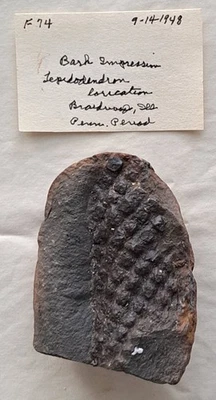 F 74 9-14-1948
Bark Impression
Lepidodendron
lorication
Braidwood, Ill
Penn. Period